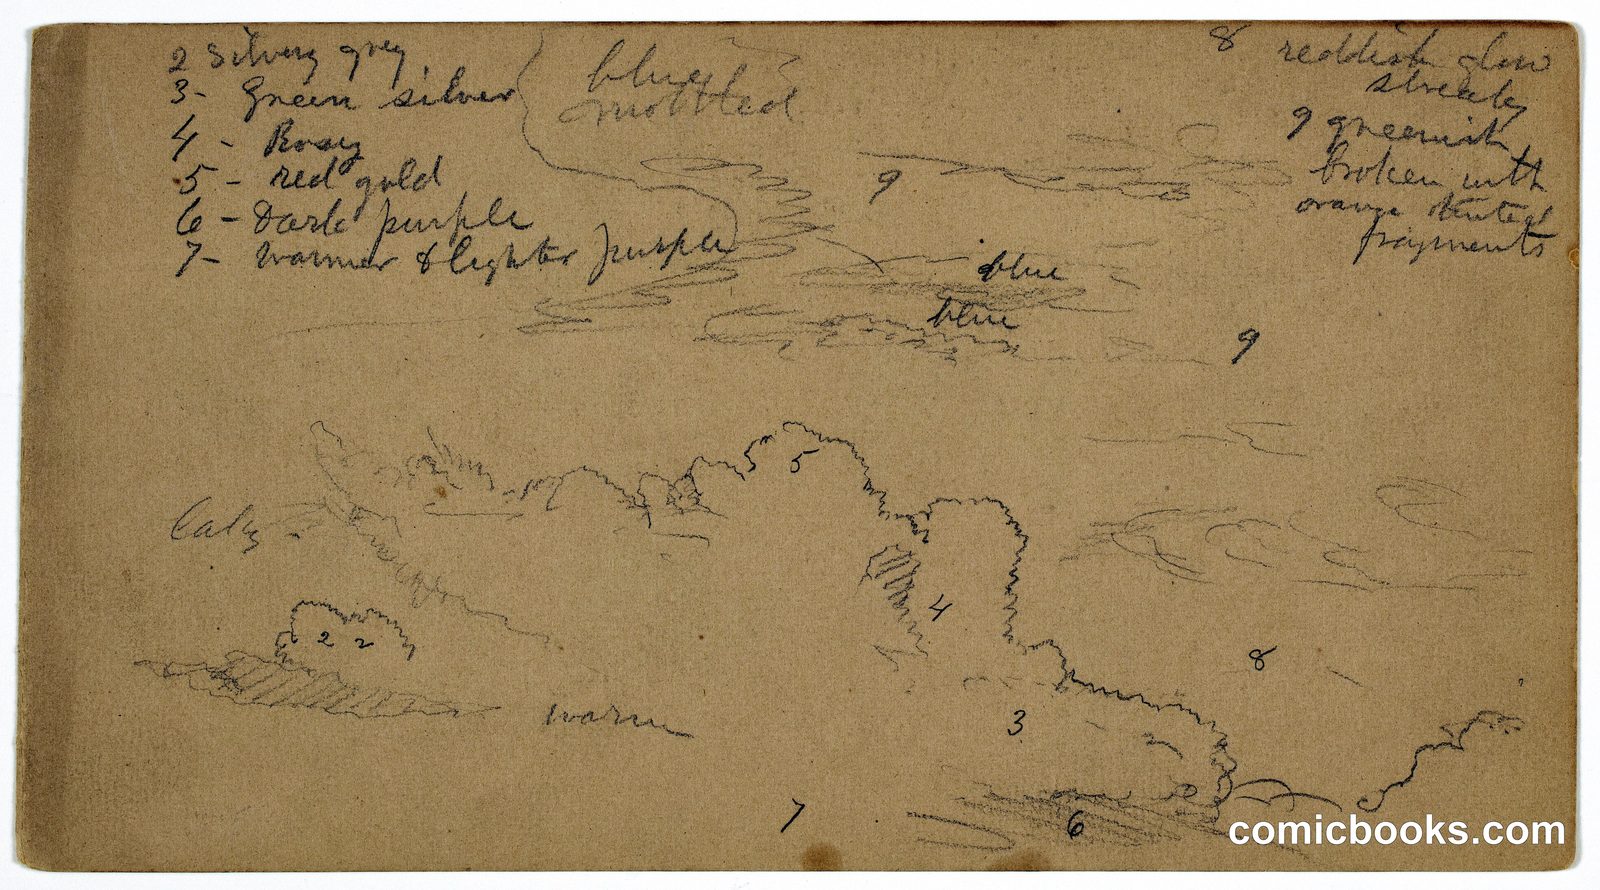 2 Silvery grey
3- Green silver
4 - Rosy
5 - red gold
6 - Dark purple
7 - warmer & lighter purple
blue
mottled
8 reddish glow
streaky
9 greenish
broken with
orange tinted
fragments
9
blue
blue
9
5
4
2 2
8
warm
3
7
6
comicbooks.com